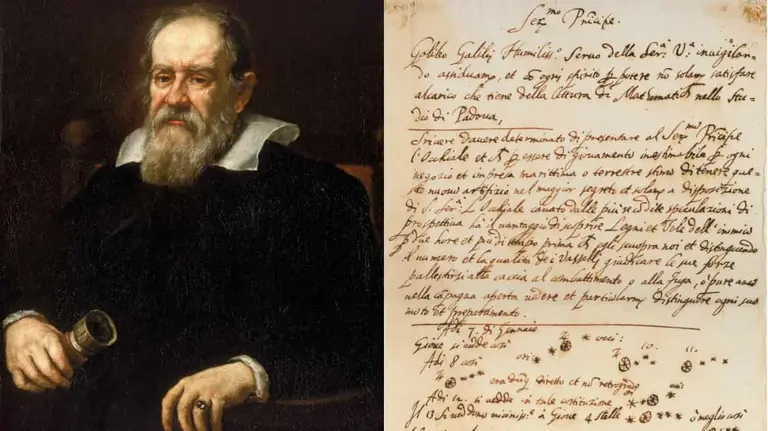 Ser.mo Principe.
Galileo Galilej Humiliss.o Servo della Ser.a V.a invigilan-
do assiduam.te, et cō ogni spirito p potere nō solam.te satisfare
al carico che tiene della lettura di Mathematich nello Stu-
dio di Padova,
Scrivere d'avere determinato di presentare al Ser.mo Principe
l'Occhiale et p essere di giovamento inestimabile p ogni
negozio et impresa marittima o terrestre stimo di tenere que-
sto nuovo artifizio nel maggior segreto et solam.te a disposizione
di S. Ser.a L'Occhiale cavato dalle più recondite speculazioni di
prospettiva ha il vantaggio di scoprire Legni et Vele dell'inimico
p due hore et più di tempo prima ch egli scuopra noi et distinguendo
il numero et la qualità dei Vasselli giudicare le sue forze
pallestirsi alla caccia al combattimento o alla fuga, o pure anco
nella cāpagna aperta vedere et particolarm.te distinguere ogni suo
moto et preparamento.
Adi 7. di Gennaio
Giove si vedde così
Adi 8 così
10. 11.
era dūq diretto et nō retrogrado
Adi 12. si vedde in tale costituzione
Il 13 si veddono à Giove 4 stelle
ò meglio così